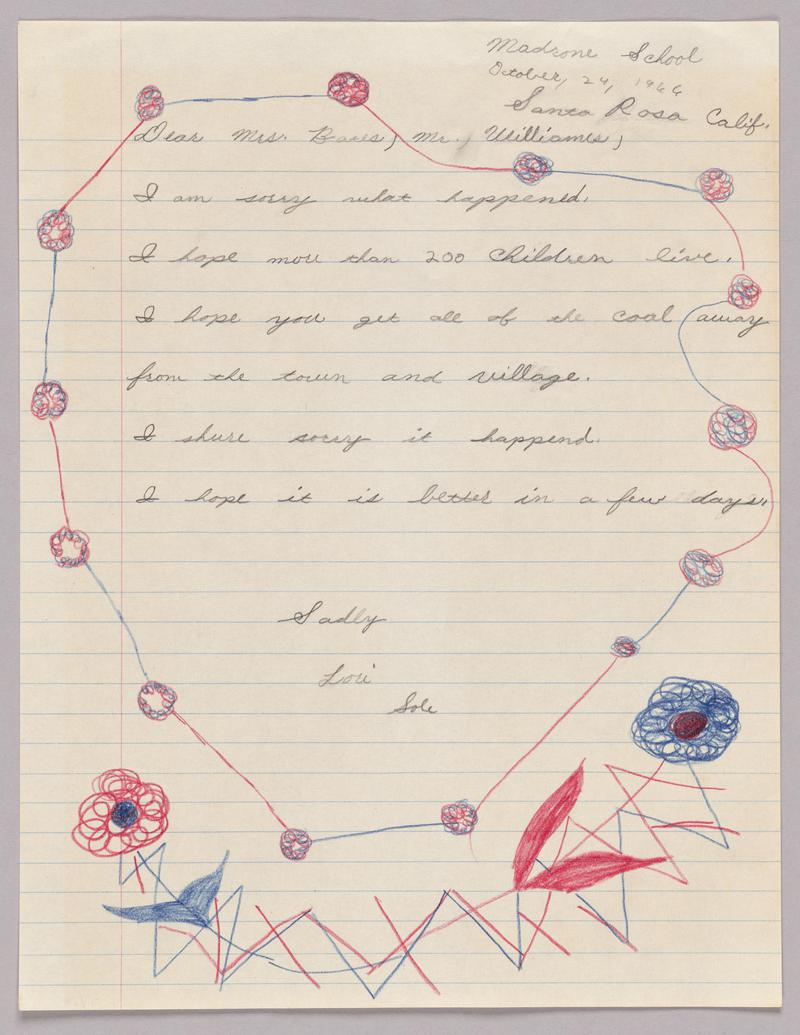 Madrone School
October, 24, 1966
Santa Rosa Calif.
Dear Mrs. Bates, Mr., Williames,
I am sorry what happened.
I hope mou than 200 children live.
I hope you get all of the coal away
from the town and village.
I shure sorry it happend.
I hope it is better in a few days.
Sadly
Lori
Sole